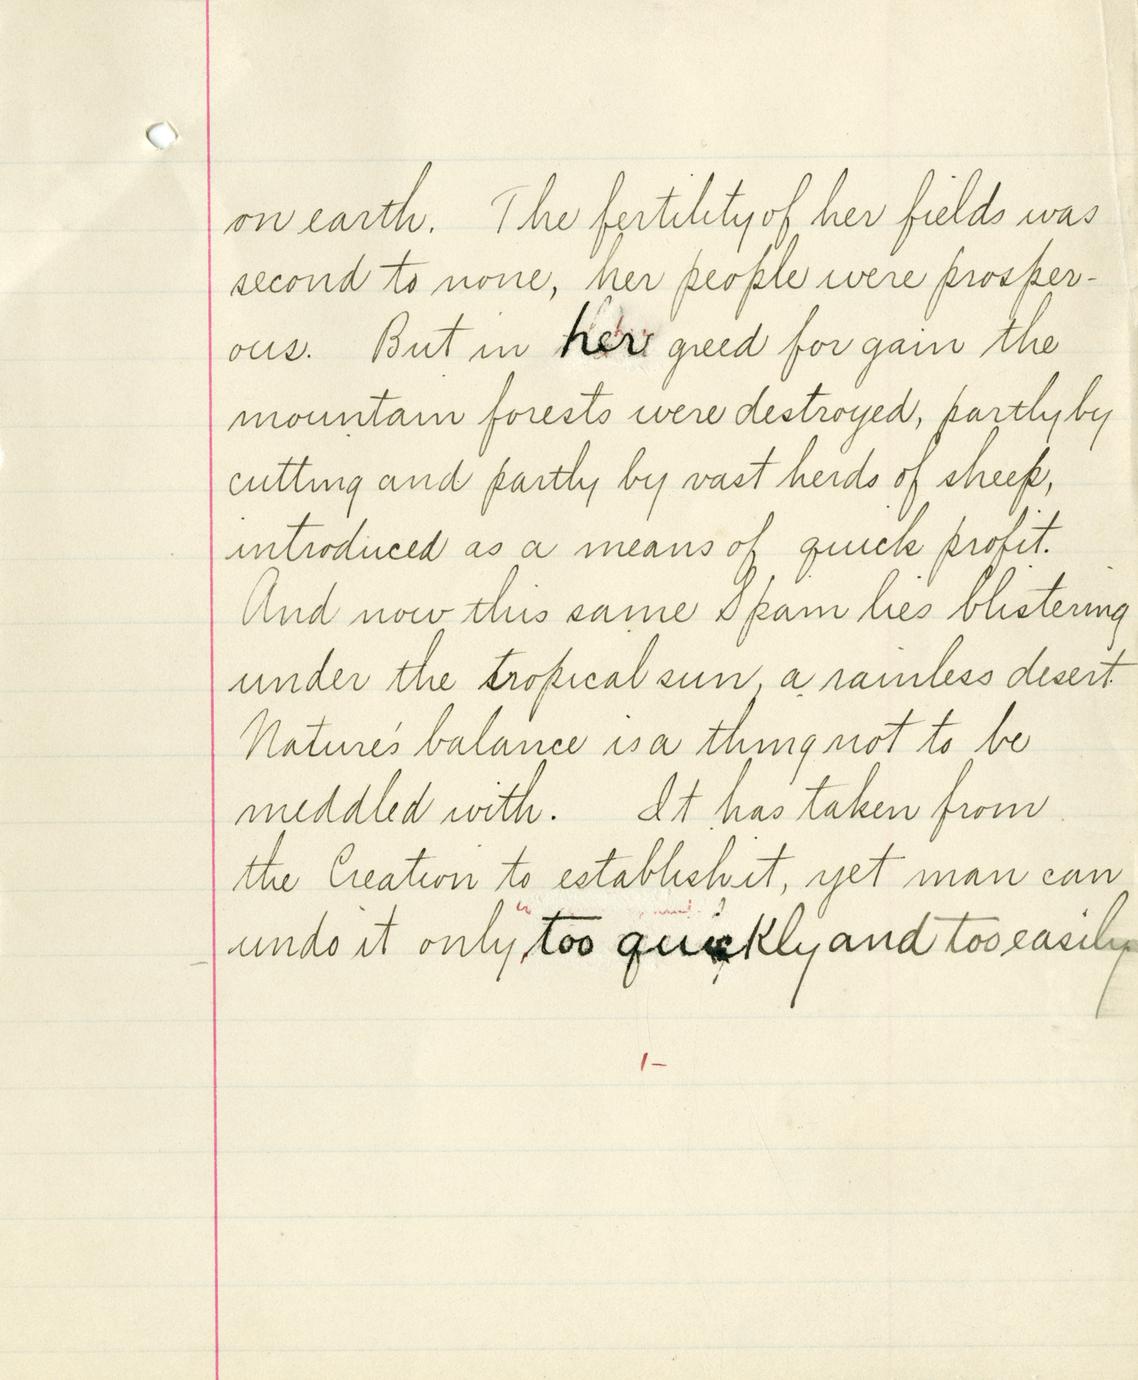 on earth. The fertility of her fields was
second to none, her people were prosper-
ous. But in her greed for gain the
mountain forests were destroyed, partly by
cutting and partly by vast herds of sheep,
introduced as a means of quick profit.
And now this same Spain lies blistering
under the tropical sun, a rainless desert.
Nature's balance is a thing not to be
meddled with. It has taken from
the Creation to establish it, yet man can
undo it only too quickly and too easily
1-